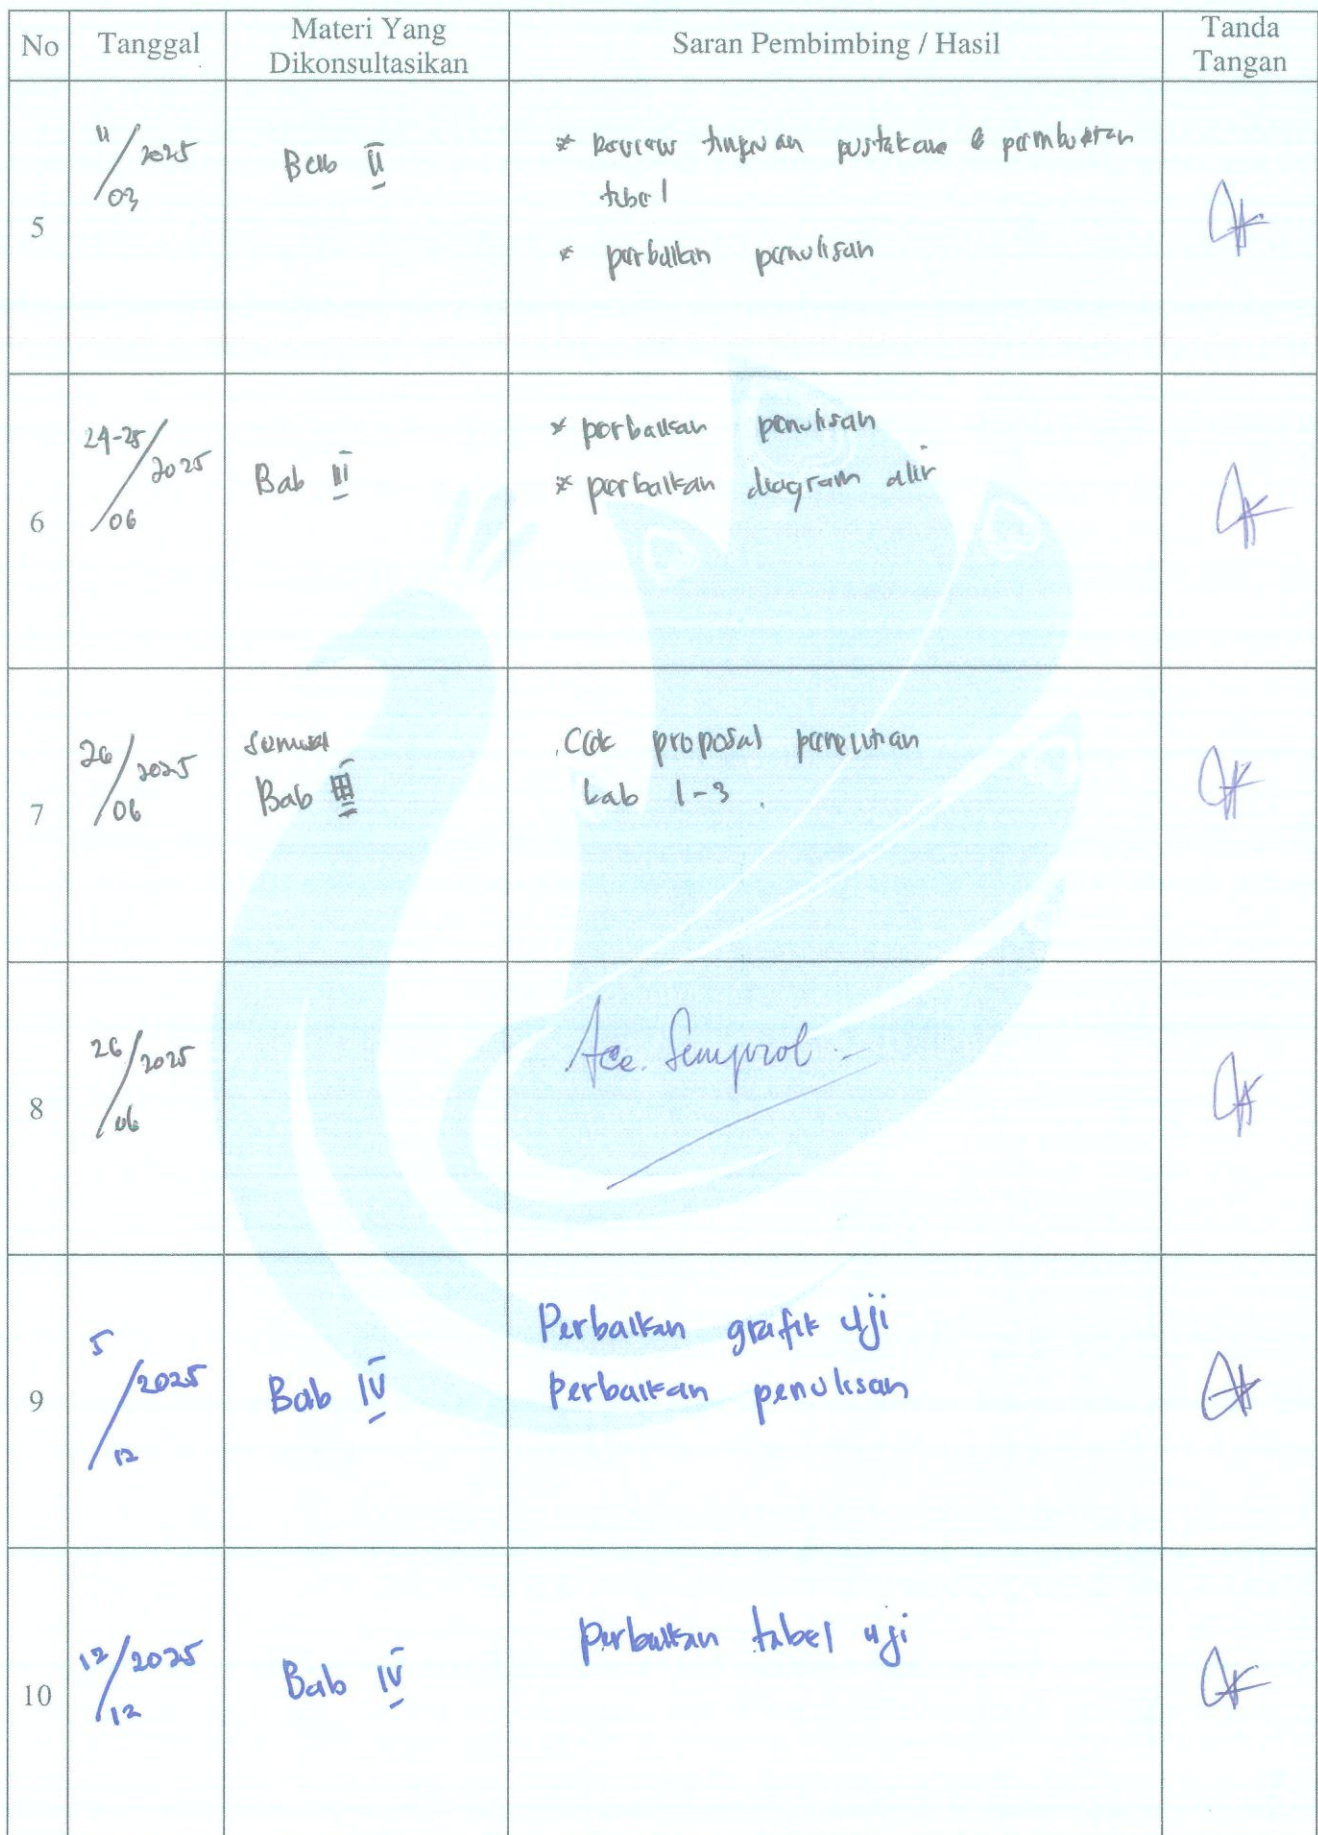 No Tanggal Materi Yang Dikonsultasikan Saran Pembimbing / Hasil Tanda Tangan
5 11/03/2025 Bab II * Review tinjauan pustaka & pembuatan
tabel
* perbaikan penulisan
6 24-25/06/2025 Bab III * perbaikan penulisan
* perbaikan diagram alir
7 26/06/2025 Bab III Cek proposal penelitian
bab 1-3.
8 26/06/2025 Acc. Sempro
9 5/12/2025 Bab IV Perbaikan grafik uji
perbaikan penulisan
10 12/12/2025 Bab IV perbaikan tabel uji